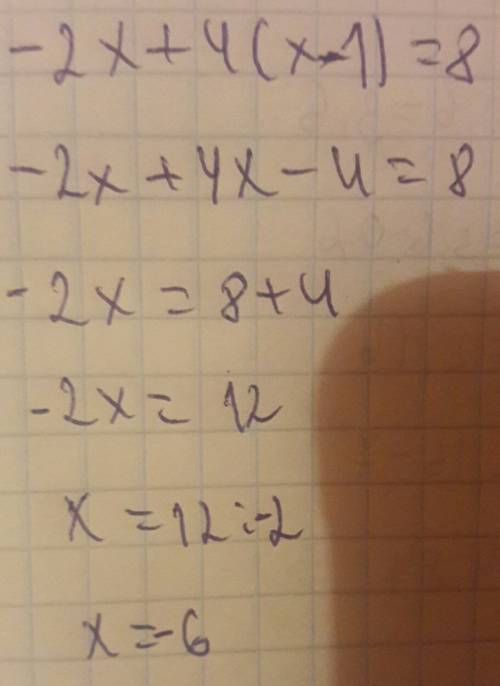 -2x+4(x-1)=8
-2x+4x-4=8
-2x=8+4
-2x=12
x=12:-2
x=-6